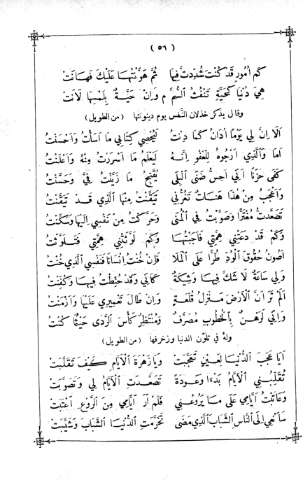 (٥٦)
كم أمور قد كنت شددت فيها ثم هونتها عليك فهانت
هي دنيا كحية تنفث السم م وإن حية بلمسها لانت
وقال يذكر خذلان النفس يوم دينونتها (من الطويل)
ألا إن لي يوما أدان كما دنت ليحصي كتابي ما أسأت وأحسنت
أما والذي أرجوه للعفو إنه ليعلم ما أسررت منه وأعلنت
كفى حزنا أني أحس ضنى البلى يقبح ما زينت في وحسنت
وأعجب من هذا هنات تغرني تيقنت مني الذي قد تيقنت
تصعدت مغترا وصوبت في المنى وحركت من نفسي إليها وسكنت
وكم قد دعتني همتي فأجبتها وكم لونتني همتي فتلونت
أصون حقوق الود طرا على العلا فإن خنت إنسانا فنفسي الذي خنت
ولي ساعة لا شك فيها وشيكة كأني وقد حنطت فيها وكفنت
ألم تر أن الأرض منزل قلعة وإن طال تعميري عليها وأزمنت
وإني لرهن بالخطوب مصرف ومنتظر كأس الردى حيثما كنت
وله في تلون الدنيا وزخرفها (من الطويل)
أيا عجب الدنيا لعين تعجبت ويا زهرة الأيام كيف تقلبت
تقلبني الأيام بدءا وعودة تصعدت الأيام لي وتصوبت
وعاتبت أيامي على ما يروعني فلم أر أيامي من الروع أعتبت
سأنعي إلى الناس الشباب الذي مضى تخرمت الدنيا الشباب وشيبت